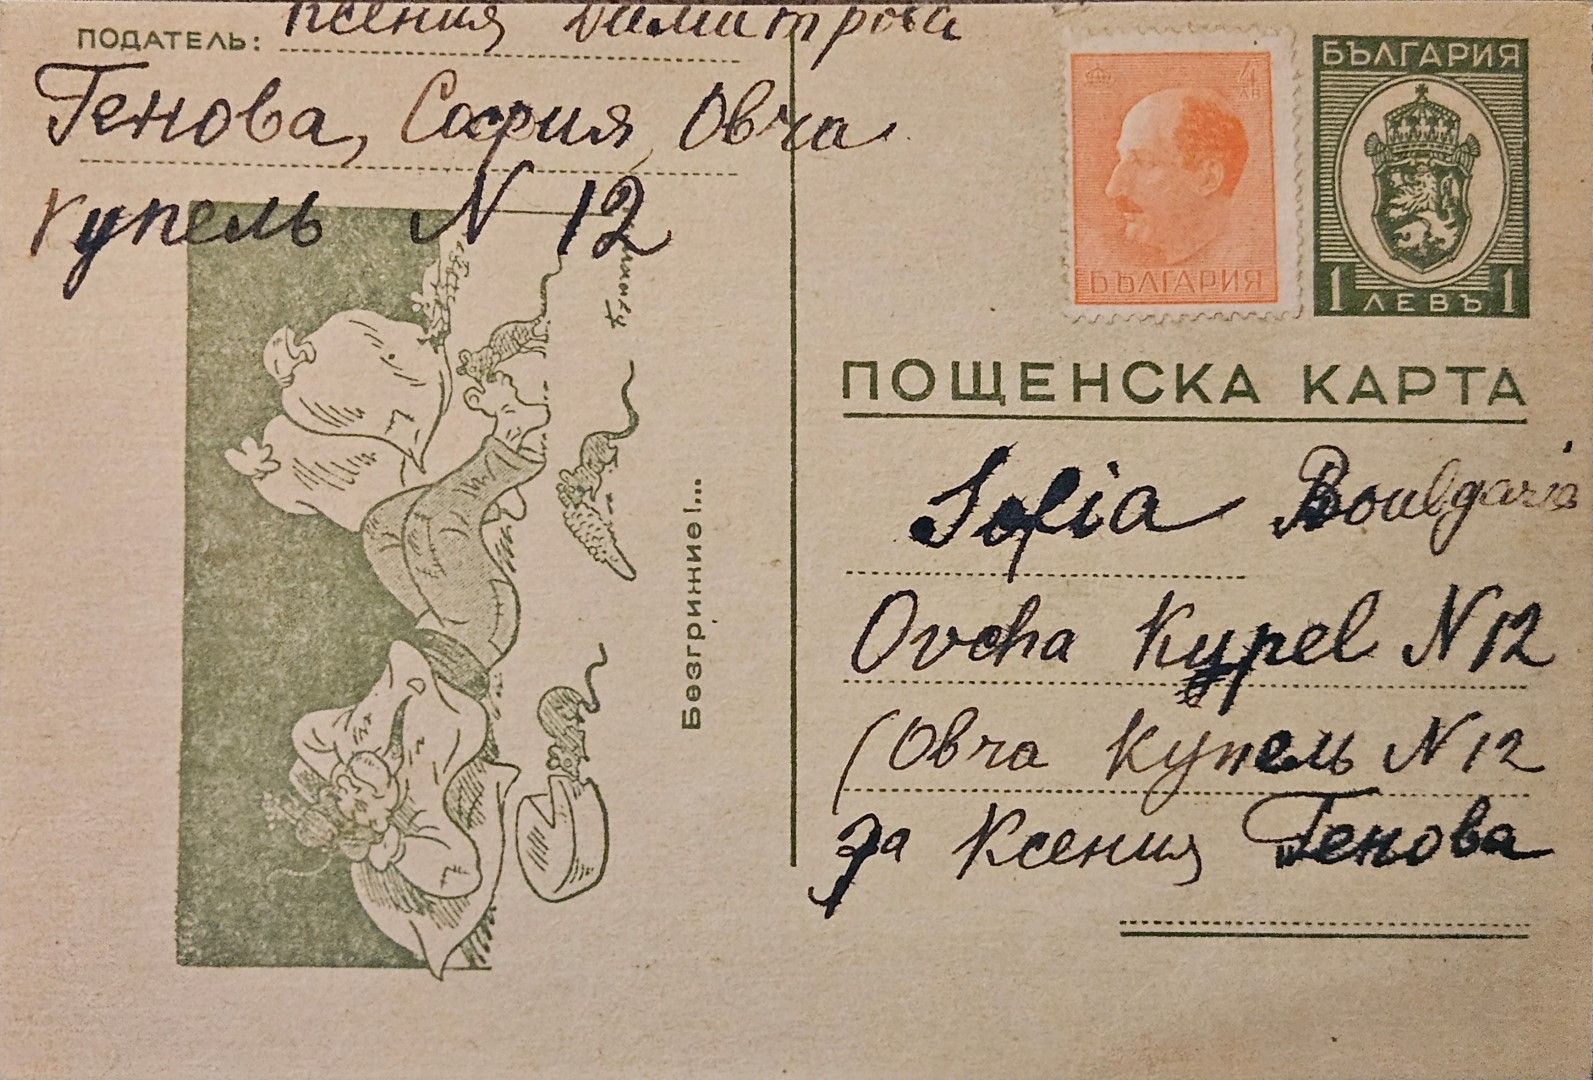 ПОДАТЕЛЬ: Ксения Димитрова
Генова, София, Овча
купель N 12
Безгрижие!...
4
ЛВ
БЪЛГАРИЯ
БЪЛГАРИЯ
1 ЛЕВЪ 1
ПОЩЕНСКА КАРТА
Sofia Boulgaria
Ovcha Kypel N 12
(Овча Купель N 12
за Ксения Генова